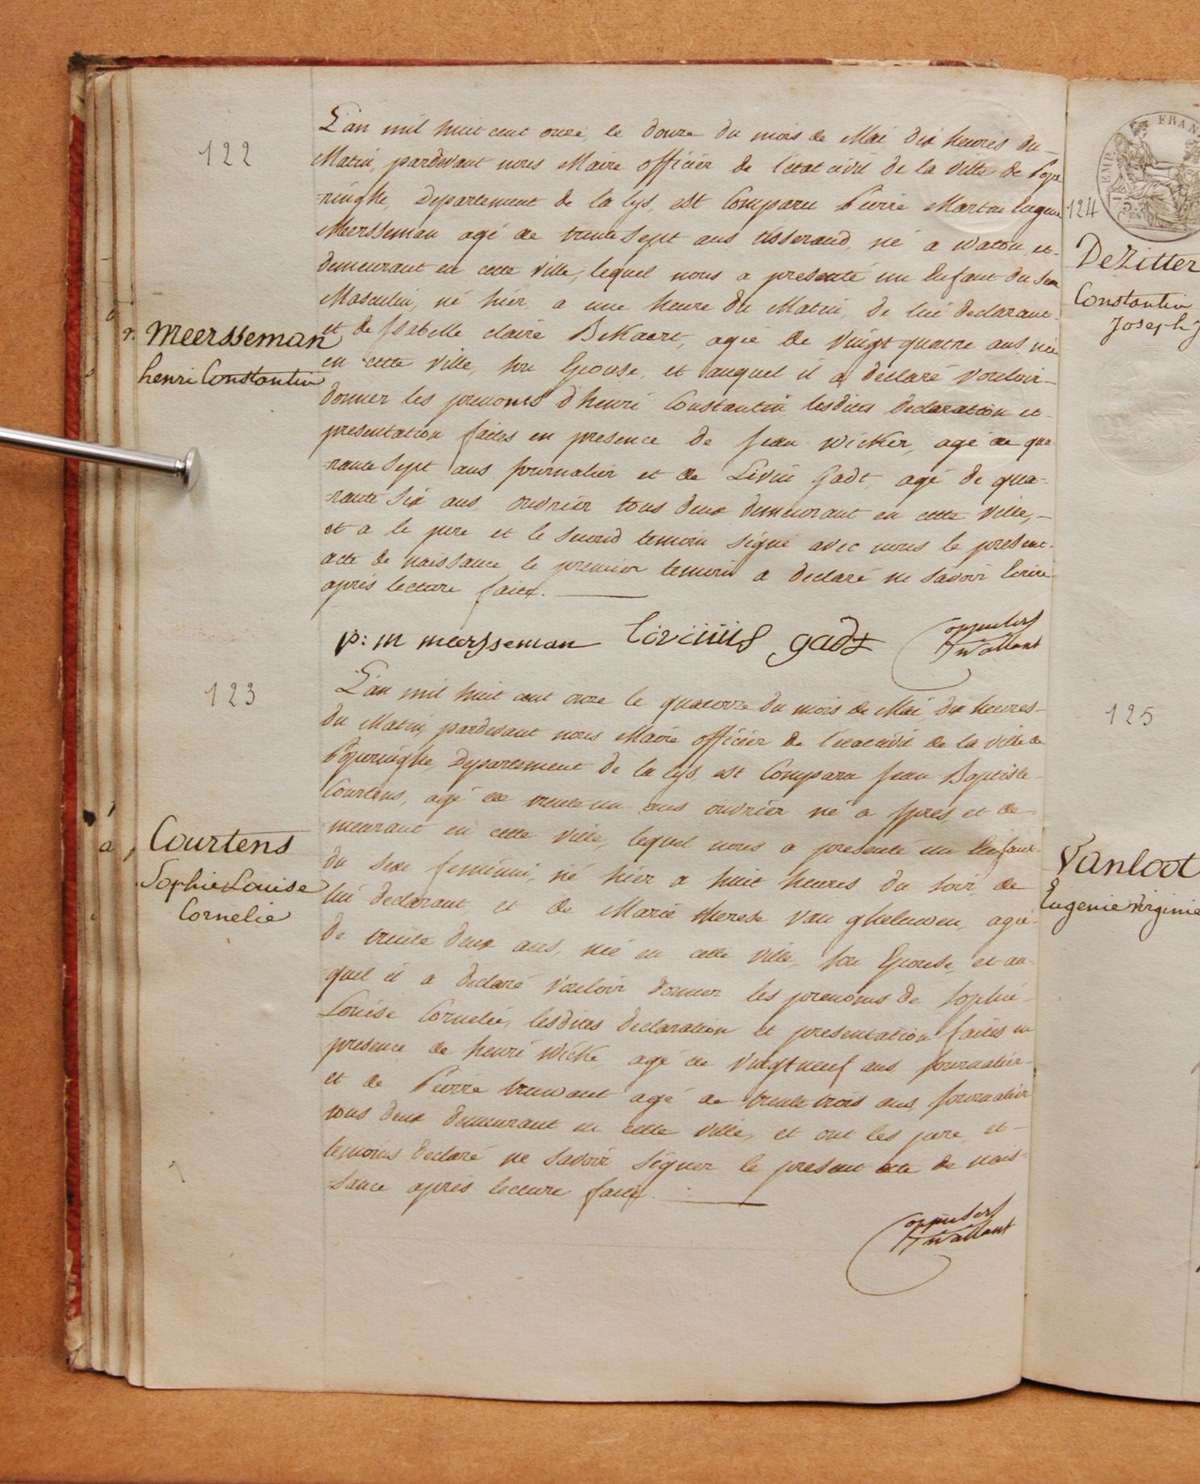 122
Meersseman
henri Constantin
L'an mil huit cent onze, le douze du mois de Mai dix heures du
Matin, pardevant nous Maire officier de l'etat civil de la ville de Pope
ringhe, Departement de la Lys, est Comparu Pierre Martin Eugene
Meersseman agé de trente sept ans tisserand, né a Watou et
demeurant en cette ville, lequel nous a presenté un Enfant du sexe
Masculin, né hier a une heure du Matin, de lui declarant
et de Isabelle Claire BeKaert, agée de vingt quatre ans née
en cette ville, son Epouse, et auquel il a declaré vouloir
donner les prenoms d'henri Constantin lesdites declaration et
presentation faites en presence de Jean Wicker, agé de qua
rante sept ans journalier et de Livin Gadt, agé de qua-
rante six ans ouvrier tous deux demeurant en cette ville,
et a le pere et le second temoin signé avec nous le present
acte de naissance le premier temoin a declaré ne savoir Ecrire
après lecture faite.
p: m meersseman Livinus gadt
123
Courtens
Sophie Louise
Cornelie
L'an mil huit cent onze le quatorze du mois de Mai dix heures
du Matin, pardevant nous Maire officier de l'etat civil de la ville de
Poperinghe, Departement de la Lys est Comparu Jean Baptiste
Courtens, agé de trente un ans ouvrier né a Ypres et de-
meurant en cette ville, lequel nous a presenté un Enfant
du sexe feminin, né hier a huit heures du soir de
lui declarant et de Marie therese Van ghelewen, agée
de trente deux ans, née en cette ville, son Epouse, et au
quel il a declaré vouloir donner les prenoms de Sophie
Louise Cornelie, lesdites declaration et presentation faites en
presence de henri Wicke, agé de vingt neuf ans journalier
et de Pierre truwant agé de trente trois ans journalier
tous deux demeurant en cette ville, et ont les pere et
temoins declaré ne savoir signer le present acte de nais-
sance après lecture faite.
124
DeZitter
Constantin
Joseph
125
Vanloot
Eugenie Virginie